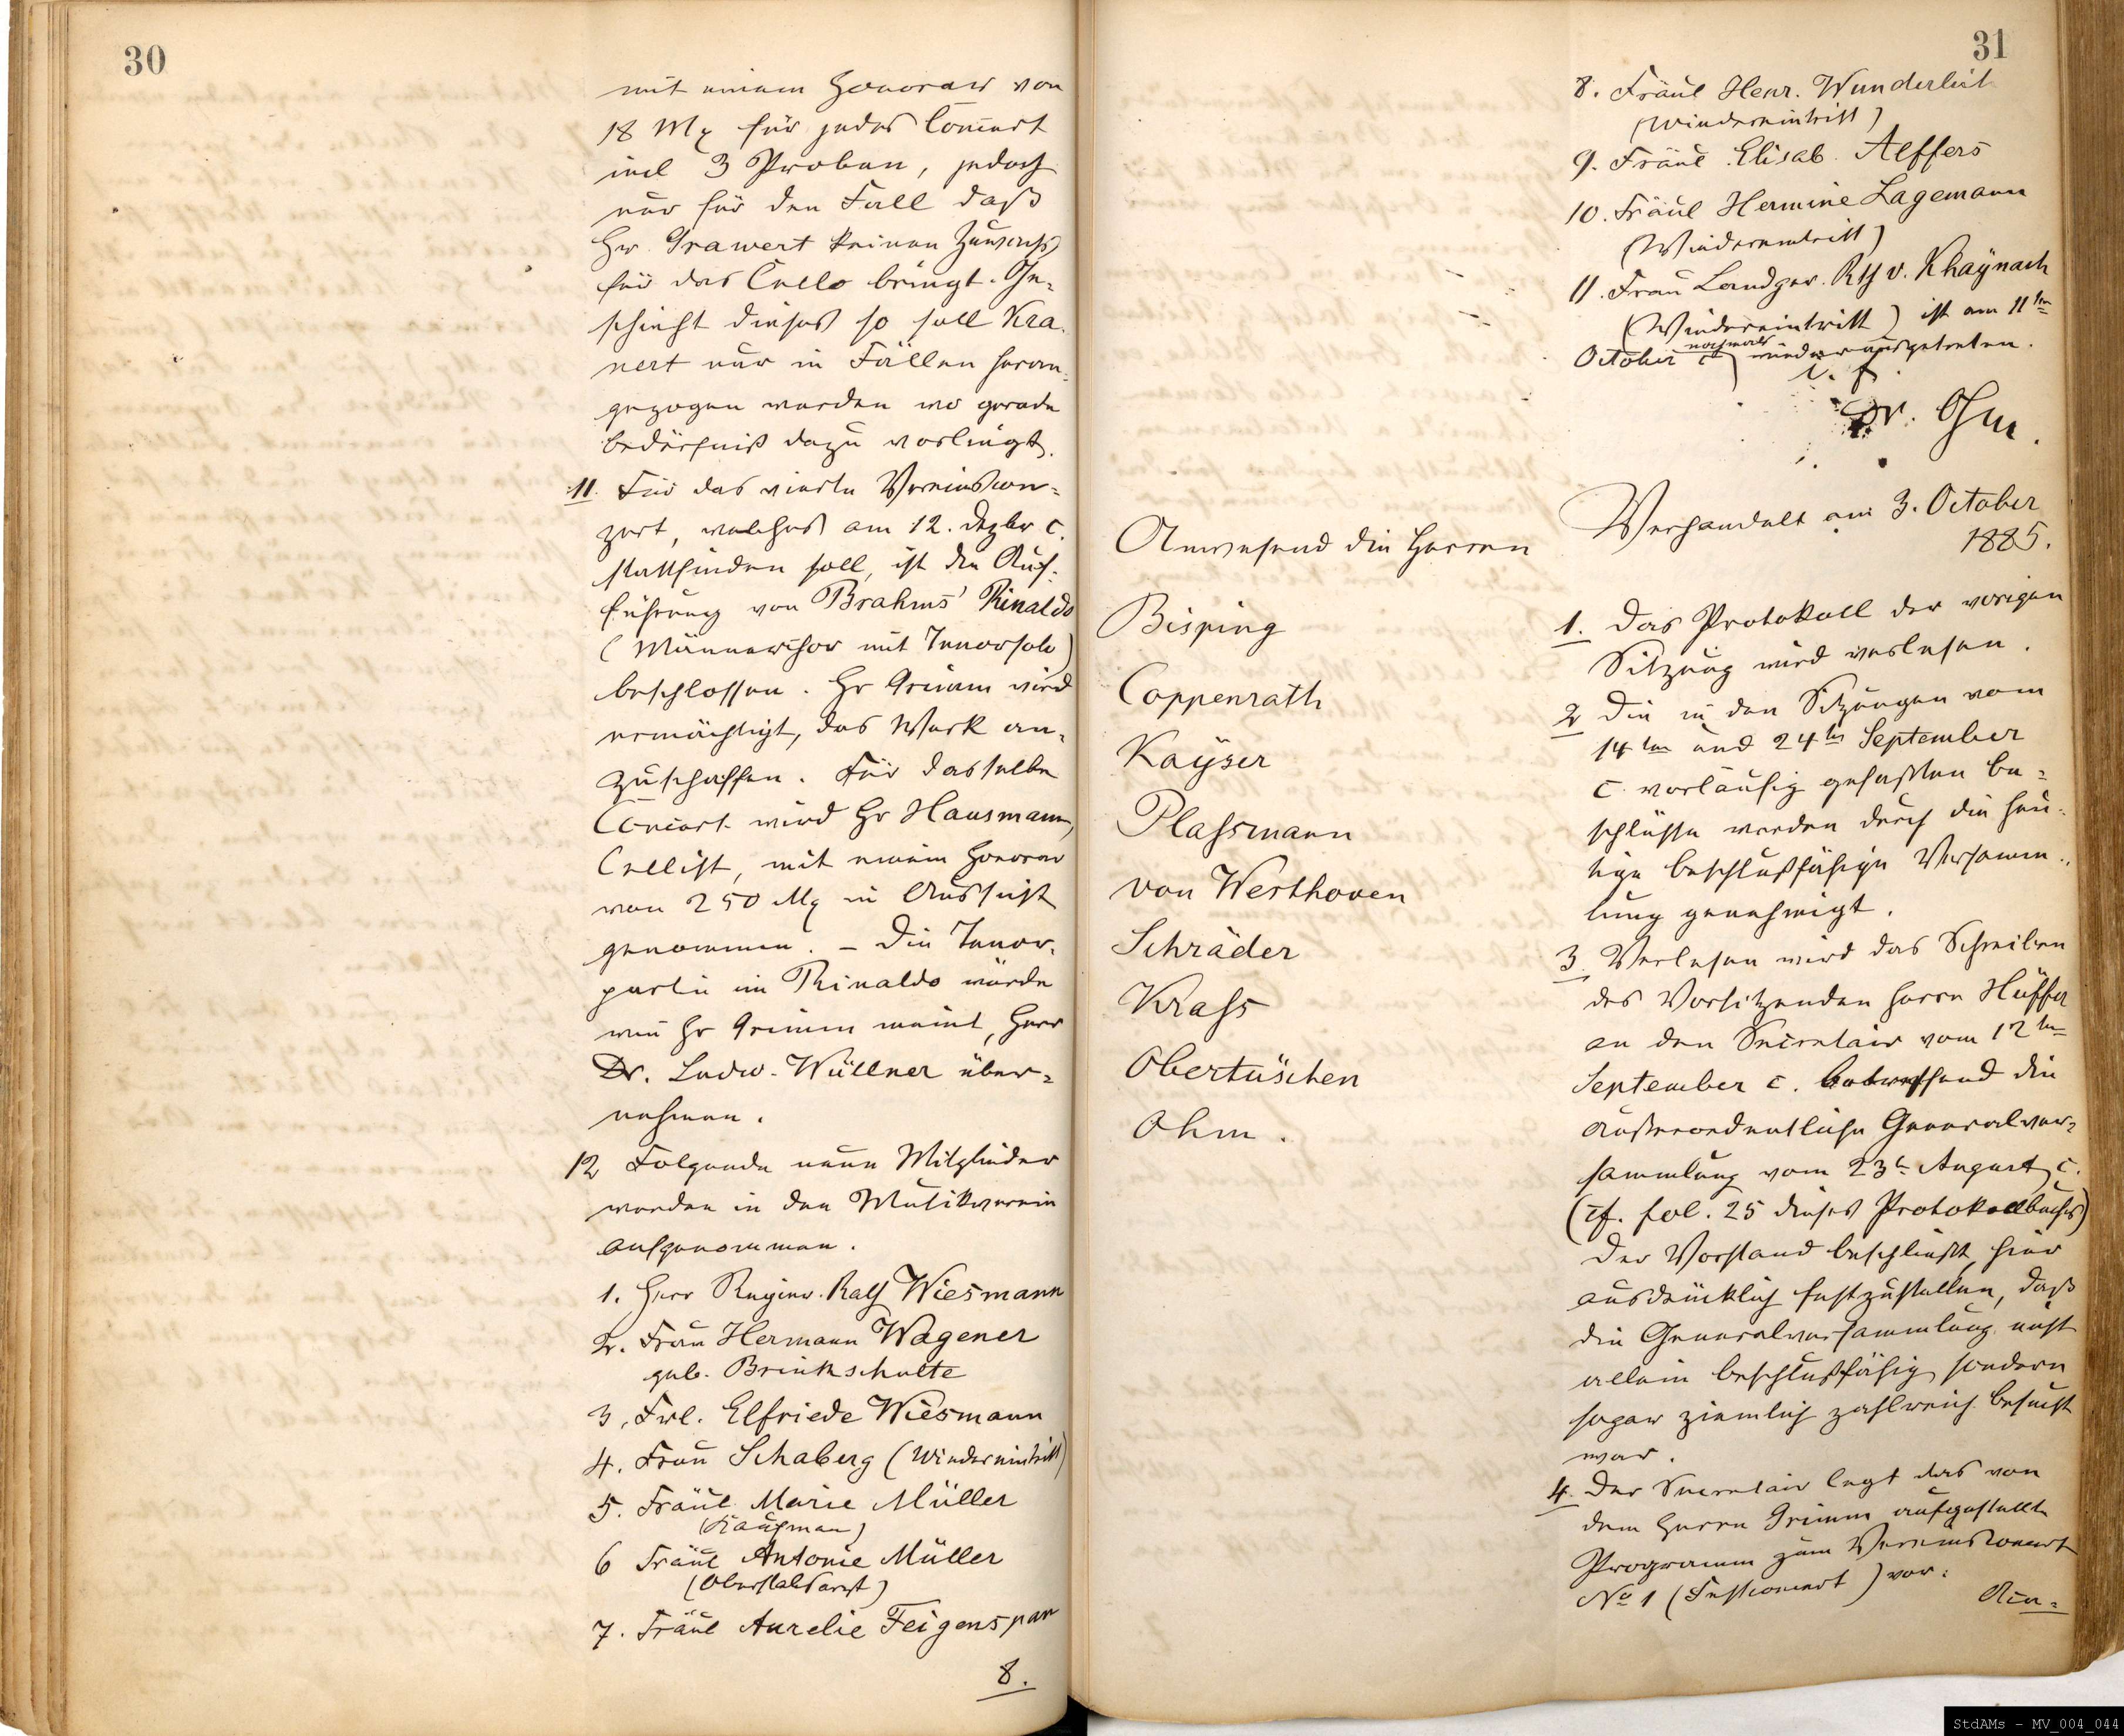 30
mit einem Honorar von
18 Mk für jedes Concert
incl 3 Proben, jedoch
nur für den Fall daß
Hr. Grawert keinen Zuwachs
für das Cello bringt. Ge=
schieht dieses so soll Kra=
nert nur in Fällen heran=
gezogen werden wo gerade
bedürfniß dazu vorliegt.
11. Für das vierte Vereinscon=
zert, welches am 12. Dezbr c.
stattfinden soll, ist die Auf=
führung von Brahms' Rinaldo
(Männerchor mit Tenorsolo)
beschlossen. Hr Grimm wird
ermächtigt, das Werk an=
zuschaffen. Für dasselbe
Concert wird Hr Hausmann,
Cellist, mit einem Honorar
von 250 Mk in Aussicht
genommen. – Die Tenor=
partie im Rinaldo würde
wie Hr Grimm meint, Herr
Dr. Ludw. Wüllner über=
nehmen.
12 Folgende neue Mitglieder
werden in den Musikverein
aufgenommen.
1. Herr Regier. Rath Wiesmann
2. Frau Hermann Wagener
geb. Brinkschulte
3. Frl. Elfriede Wiesmann
4. Frau Schaberg (Wiedereintritt)
5. Fräul Marie Müller
(Kaufman)
6 Fräul Antonie Müller
(Oberstabsarzt)
7. Fräul Aurelie Feigenspan
8.
31
8. Fräul Henr. Wunderlich
(Wiedereintritt)
9. Fräul Elisab. Aeffers
10. Fräul Hermine Lagemann
(Wiedereintritt)
11. Frau Landger. Rth v. Khaÿnach
(Wiedereintritt) ist am 11ten
October c nochmals wieder ausgetreten.
Dr. Ohm.
Verhandelt am 3. October
1885.
Anwesend die Herren
Bisping
Coppenrath
Kaÿser
Plassmann
von Westhoven
Schräder
Krass
Obertüschen
Ohm.
1. Das Protokoll der vorigen
Sitzung wird verlesen.
2 Die in den Sitzungen vom
14ten und 24ten September
c. vorläufig gefaßten be=
schlüsse werden durch die heu=
tige beschlußfähige Versamm=
lung genehmigt.
3. Verlesen wird das Schreiben
des Vorsitzenden Herrn Hüffer
an den Secretair vom 12ten
September c. betreffend die
außerordentliche Generalver=
sammlung vom 23t August c.
(cf. fol. 25 dieses Protokollbuches)
Der Vorstand beschließt, hier
ausdrücklich festzustellen, daß
die Generalversammlung nicht
allein beschlußfähig sondern
sogar ziemlich zahlreich besucht
war.
4. Der Secretair legt das von
dem Herrn Grimm aufgestellte
Programm zum Vereinsconcert
No 1 (Festconcert) vor:
StdAMs - MV_004_044